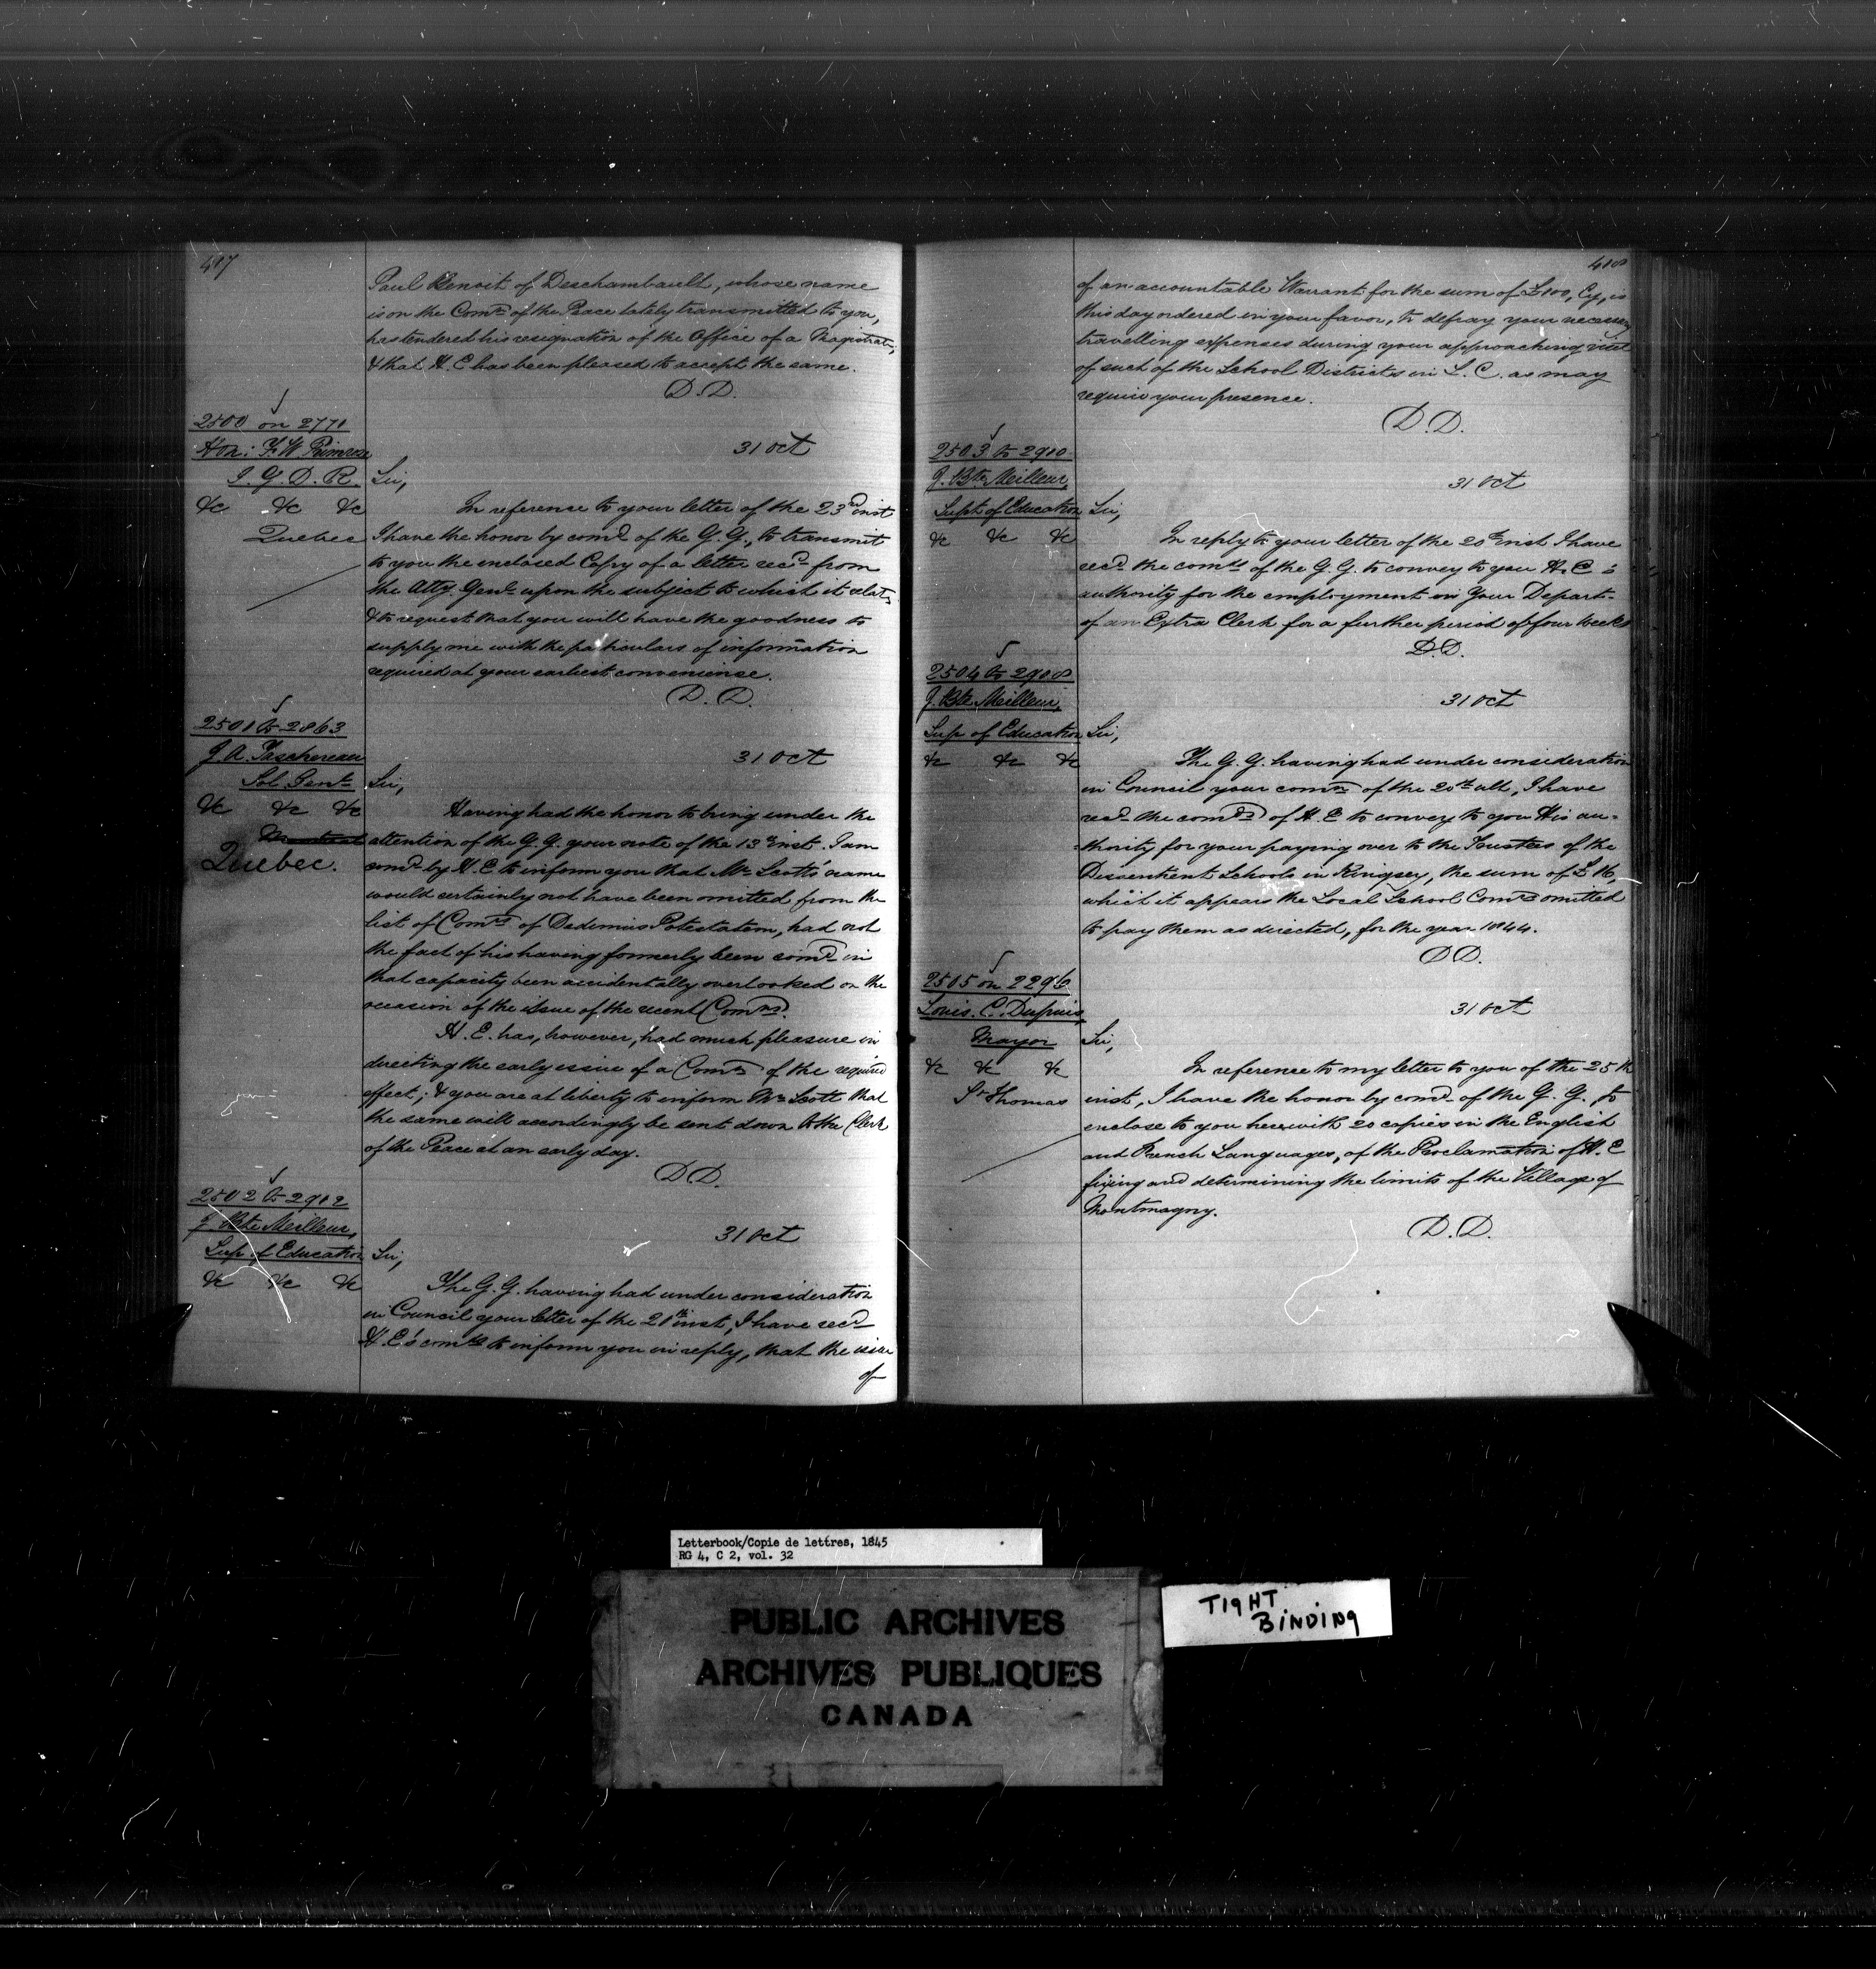 417
Paul Benoit of Deschambault, whose name
is on the Comn of the Peace lately transmitted to you,
has tendered his resignation of the Office of a Magistrate,
& that H. E. has been pleased to accept the same.
D. D.
2500 on 2771
Hon: F. W. Primrose
I. G. D. R.
&c &c &c
Quebec
31 Oct
Sir,
In reference to your letter of the 23rd inst
I have the honor by comd of the G. G., to transmit
to you the enclosed Copy of a letter recd from
the Atty. Genl upon the subject to which it relates
& to request that you will have the goodness to
supply me with the particulars of information
required at your earliest convenience.
D. D.
2501 to 2863
J. A. Taschereau
Sol. Genl
&c &c &c
Montreal
Quebec.
31 Oct
Sir,
Having had the honor to bring under the
attention of the G. G. your note of the 13th inst. I am
comd by H. E. to inform you that Mr Scott's name
would certainly not have been omitted from the
list of Comrs of Dedimus Potestatem, had not
the fact of his having formerly been comd in
that capacity been accidentally overlooked on the
occasion of the issue of the recent Comns.
H. E. has, however, had much pleasure in
directing the early issue of a Comn of the required
effect; & you are at liberty to inform Mr Scott that
the same will accordingly be sent down to the Clerk
of the Peace at an early day.
D. D.
2502 to 2912
J. Bte Meilleur,
Sup of Education
&c &c &c
31 Oct
Sir,
The G. G. having had under consideration
in Council your letter of the 21st inst, I have recd
H. E's comds to inform you in reply, that the issue
of
418
of an accountable Warrant for the sum of £100, Cy, is
this day ordered in your favor, to defray your necessary
travelling expenses during your approaching visit
of such of the School Districts in L. C. as may
require your presence.
D. D.
2503 to 2910
J. Bte Meilleur,
Supt of Education
&c &c &c
31 Oct
Sir,
In reply to your letter of the 20th inst I have
recd the comds of the G. G. to convey to you H. E's
authority for the employment in Your Depart-
of an Extra Clerk for a further period of four weeks
D. D.
2504 to 2908
J. Bte Meilleur,
Sup of Education
&c &c &c
31 Oct
Sir,
The G. G. having had under consideration
in Council your comn of the 20th ult, I have
recd the comds of H. E. to convey to you His au-
-thority for your paying over to the Trustees of the
Dissentient Schools in Kingsey, the sum of £16,
which it appears the Local School Comrs omitted
to pay them as directed, for the year 1844.
D. D.
2505 on 2296
Louis. C. Dupuis,
Mayor
&c &c &c
St Thomas
31 Oct
Sir,
In reference to my letter to you of the 25th
inst, I have the honor by comd of the G. G. to
enclose to you herewith 20 copies in the English
and French Languages, of the Proclamation of H. E
fixing and determining the limits of the Village of
Montmagny.
D. D.
Letterbook/Copie de lettres, 1845
RG 4, C 2, vol. 32
PUBLIC ARCHIVES
ARCHIVES PUBLIQUES
CANADA
TIGHT
BINDING